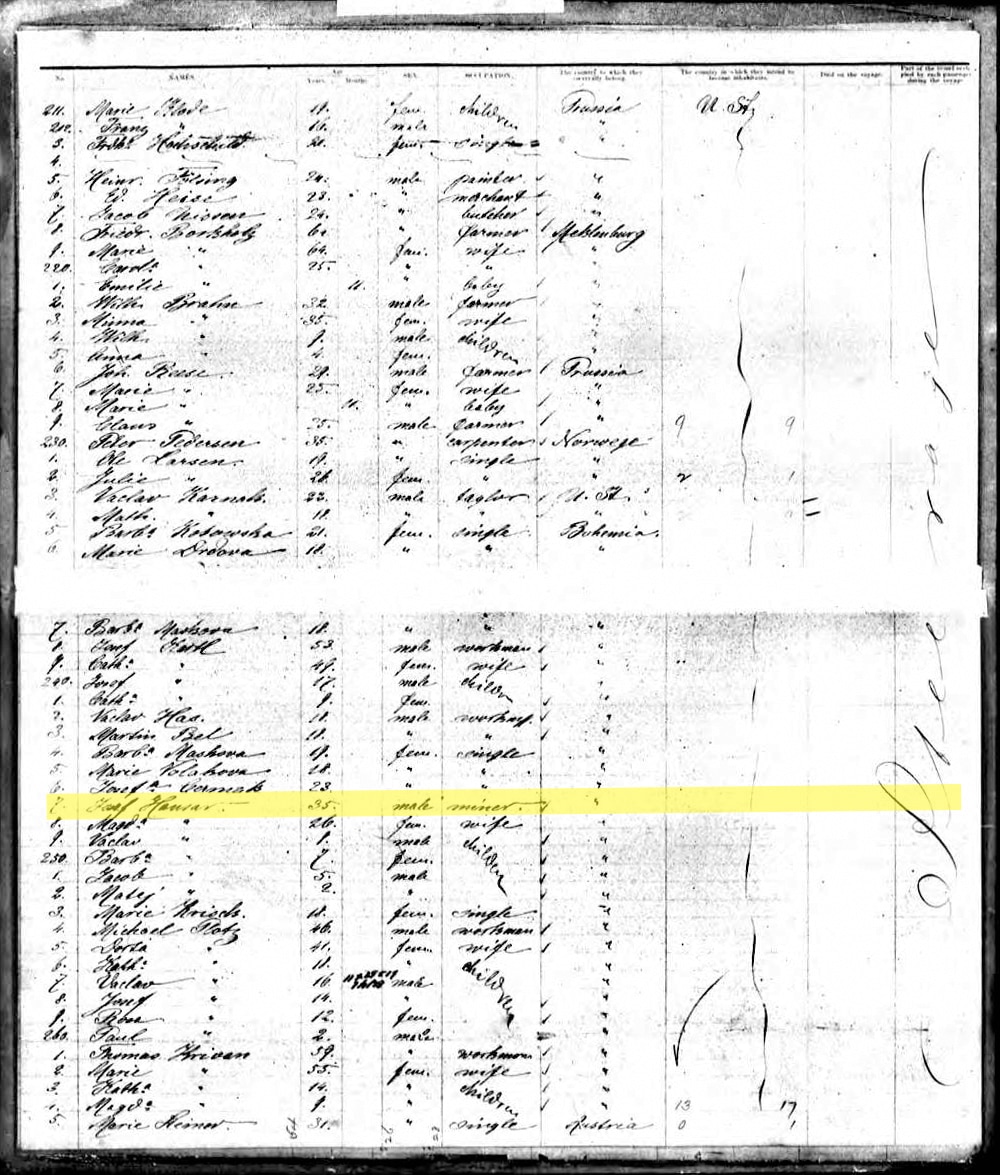 No. NAMES. Age Years. Months. SEX. OCCUPATION. The country to which they severally belong. The country in which they intend to become inhabitants. Died on the voyage. Part of the vessel occupied by each passenger during the voyage.
211. Marie 19. fem. children Prussia U. St.
212. Franz " 16. male "
3. Hochschild 21. fem. single "
4.
5. Heinr. 24. male painter "
6. Ed. Heise 23. " merchant "
7. Jacob Nissen 24. " butcher "
8. Friedr. Borkholz " farmer Meklenburg
9. Marie " 64. fem. wife "
220. Carol. " 25. " "
1. Emilie " 11. baby "
2. Wilh. Brahn 32. male farmer "
3. Minna " 35. fem. wife "
4. Wilh. " 9. male children
5. Anna " 4. fem. "
6. Joh. Reese 29. male farmer Prussia
7. Marie " 25. fem. wife "
8. Marie " 11. " baby "
9. Claus " 25. male farmer " 9 9
230. Peter Pedersen 35. " carpenter Norwege
1. Ole Larsen 19. " single "
2. Julie " 20. fem. " " 2 1
3. Vaclav Karnat. 23. male taylor U. St.
4. Math. " 18. " " "
5. Barb. Kobowska 21. fem. single Bohemia.
6. Marie Drdova 18. " " "
7. Barb. Mashova 18. " " "
8. Josef Hertl 53. male workman "
9. Cath. " 49. fem. wife "
240. Josef " 17. male children
1. Cath. " 9. fem. "
2. Vaclav Has. 18. male workm. "
3. Martin Bel 18. " " "
4. Barb. Mashova 19. fem. single "
5. Marie Volakova 18. " "
6. Josef. Cermak 23. " " "
7. Josef Hausar. 35. male miner. "
8. Magd. " 26. fem. wife "
9. Vaclav " 8. male children "
250. Barb. " 7. fem. "
1. Jacob " 5. male "
2. Matej " 2. " "
3. Marie Krisch. 18. fem. single "
4. Michael Flotz 46. male workman "
5. Dorta " 41. fem. wife "
6. Kath. " 18. " children "
7. Vaclav " 16. male "
8. Josef " 14. " "
9. Rosa " 12. fem. "
260. Paul " 2. male "
1. Thomas Krivan 59. " workman "
2. Marie " 55. fem. wife "
3. Kath. " 14. " children "
4. Magd. " 9. " " 13 17
5. Marie Heiner. 31. " single Austria 0 1
Steerage